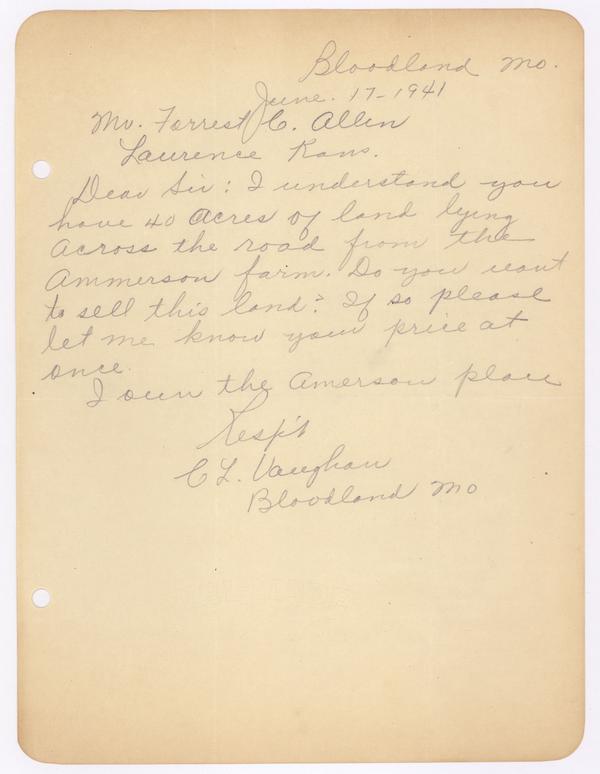 Bloodland Mo.
June. 17-1941
Mr. Forrest C. Allen
Laurence Kans.
Dear Sir: I understand you
have 40 Acres of land lying
across the road from the
Ammerson farm. Do you want
to sell this land? If so please
let me know your price at
once.
I own the Amerson place
Resp't
C L. Vaughan
Bloodland Mo